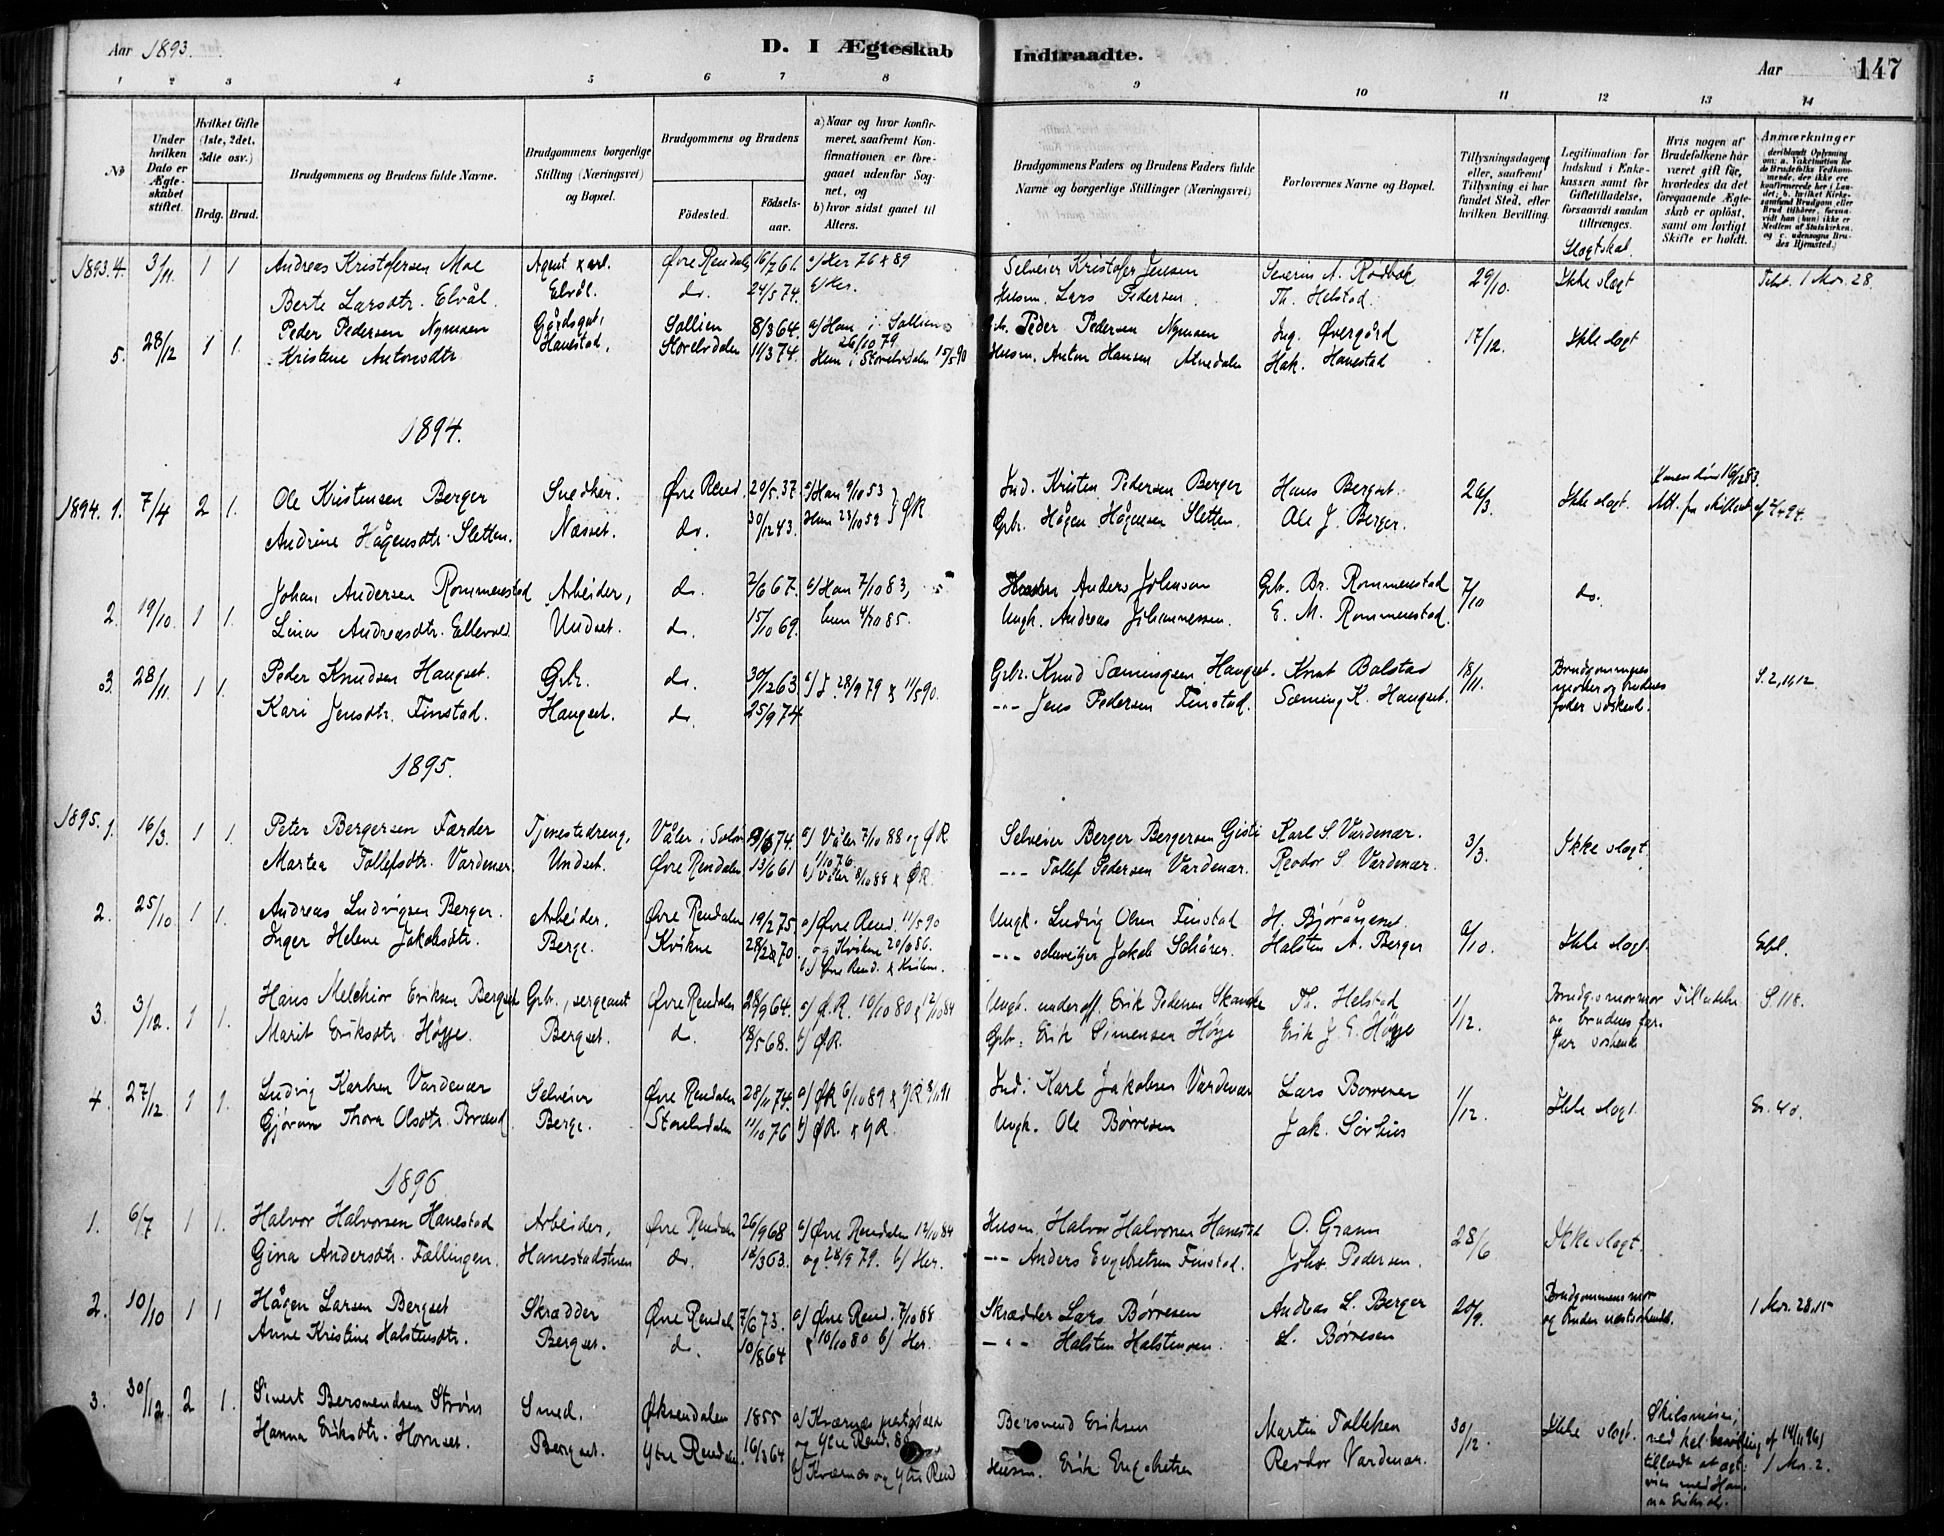 Aar 1893. D. I Ægteskab Indtraadte. Aar 147
1 2 3 4 5 6 7 8 9 10 11 12 13 14
No
Under hvilken Dato er Ægteskabet stiftet.
Hvilket Gifte (1ste, 2det, 3die osv.)
Brdg. Brud.
Brudgommens og Brudens fulde Navne.
Brudgommens borgerlige Stilling (Næringsvei) og Bopæl.
Brudgommens og Brudens
Fødested. Fødselsaar.
a) Naar og hvor konfirmeret, saafremt Konfirmationen er foregaaet udenfor Sognet, og
b) hvor sidst gaaet til Alters.
Brudgommens Faders og Brudens Faders fulde Navne og borgerlige Stillinger (Næringsvei)
Forlovernes Navne og Bopæl.
Tillysningsdagene, eller, saafremt Tillysning ei har fundet Sted, efter hvilken Bevilling.
Legitimation for Indskud i Enkekassen samt for Giftetilladelse, forsaavidt saadan tiltrænges.
Slægtskab.
Hvis nogen af Brudefolkene har været gift før, hvorledes da det foregaaende Ægteskab er opløst, samt om lovligt Skifte er holdt.
Anmærkninger
1893. 4. 3/11. 1 1 Andreas Kristofersen Moe Agent Øvre Rendalen 16/7 61. a) Her 76 & 89 Selveier Kristofer Jensen Severin A. Rødbæk 29/10. Ikke slegt 1 Mos. 28.
Berte Larsdtr. Elvål Elvål. do. 24/5 74. b) Her. Husm. Lars Pedersen. Th. Helstad.
5. 28/12 1 1. Peder Pedersen Nymoen Gårdsgut, Sollien 8/3 64. a) Han i Sollien 26/10 79 Gbr. Peder Pedersen Nymoen Ing. Øvergård 17/12. Ikke slegt
Kristine Antonsdtr Hanestad, Storelvdalen 11/3 74. Hun i Storelvdalen 15/5 90 Husm. Anton Hansen Atnedalen Hak. Hanestad
1894.
1894. 1. 7/4 2 1. Ole Kristensen Berger Snedker. Øvre Rend. 20/5 37. a) Han 9/10 53 Ind. Kristen Pedersen Berger Hans Bergset. 26/3. Ikke slegt.
Andrine Hågensdtr. Sletten. Næsset. do. 30/12 43. Hun 23/10 59 } ØR Gbr. Hågen Hågensen Sletten. Ole J. Berger.
2. 19/10. 1 1. Johan Andersen Rommenstad Arbeider, do. 2/6 67. a) Han 7/10 83, Anders Johnson Gbr. Br. Rommenstad 7/10 do.
Lina Andreasdtr. Ellevold Undset. do. 15/10 69. hun 4/10 85. Ungk. Andreas Johannessen. E. M. Rommenstad.
3. 28/11. 1 1. Peder Knudsen Haugset. Gbr. do. 30/12 63 28/9 79 & 11/5 90. Gbr. Knud Sæmingsen Haugset. Knut Balstad 18/11. Brudgommens moder og brudens fader søskend. S. 2, 11, 12.
Kari Jensdtr. Finstad. Haugset. do. 25/9 74 --- Jens Pedersen Finstad. Sæming K. Haugset.
1895.
1895. 1. 16/3. 1 1. Peter Bergersen Færder Tjenestedreng, Våler i Solør 74. a) Våler 7/10 88 og ØR Selveier Berger Bergersen Karl S. Vardenær. 3/3. Ikke slegt.
Martea Tollefsdtr. Vardenær. Undset. Øvre Rendalen 13/6 61 1/10 76. b) Våler 8/10 88 & ØR. --- Tollef Pedersen Vardenær. Reodor S. Vardenær.
2. 25/10 1 1. Andreas Ludvigsen Berger. Arbeider. Øvre Rendalen 19/2 75. a) Øvre Rend. 11/5 90 Ungk. Ludvig Olsen Finstad H. Bjørånget 6/10. Ikke slegt.
Inger Helene Jakobsdtr. Berge. Kvikne 70. og Kvikne 20/6 86. --- Jakob Schärer. Halsten A. Berger
b) Øvre Rend. & Kvikne.
3. 3/12. 1 1. Hans Melchior Eriksen Bergset Gbr., sergeant Øvre Rendalen 28/9 64. a) Ø.R. 10/10 80 & 12/10 84 Ungk. underoff. Erik Pedersen Skancke Th. Helstad 1/12. Brudg.s mormor og brudens farfar søskende Tilladelse S. 118.
Marit Eriksdtr. Høye. Bergset. d. 18/5 68. b) ØR. Gbr. Erik Simensen Høye Erik J. E. Høye
4. 27/12 1 1. Ludvig Karlsen Vardenær Selveier Øvre Rendalen 28/11 74. a) ØR 6/10 89 & YR 8/11 91 Ind. Karl Jakobsen Vardenær Lars Børresen 1/12. Ikke slegt.
Gjøran Thora Olsdtr. Brænd Berge. Storelvdalen 11/10 76 b) ØR. & YR. Ungk. Ole Børresen Jak. Sørhus
1896
1. 6/7 1 1. Halvor Halvorsen Hanestad Arbeider, Øvre Rendalen 26/9 68 a) Øvre Rendalen 12/10 84 Husm. Halvor Halvorsen Hanestad O. Gram 28/6 Ikke slegt.
Gina Andersdtr. Fællingen. Hanestadstuen do. 18/3 63. og 28/9 79. b) Her. --- Anders Engebretsen Finstad. Johs. Pedersen.
2. 10/10 1 1 Hågen Larsen Bergset Skrædder Øvre Rendal. 7/6 73. a) Øvre Rend. 7/10 88 Skrædder Lars Børresen Andreas L. Berger 20/9. Brudgommens mor og bruden næstsøskende. 1 Mos. 28, 15
Anne Kristine Halstensdtr. Bergset. d. 10/8 64 & 10/10 80 b) Her. --- Halsten Halstensen. L. Børresen
3. 30/12 2 1. Sivert Bersvendsen Strøm Smed. Øksendalen 1855 a) Kværnæs præstegjæld Bersvend Eriksen Martin Tollefsen 30/12. Ikke slegt. Skilsmisse; ved kgl. bevilling af 14/11 96
Hanna Eriksdtr. Hornset. Bergset. Ytre Rendalen. 16/3 64 og Ytre Rend. 80 Husm. Erik Engebretsen Reodor Vardenær. tilladt at ægtevies med Hanna Eriksdtr. 1 Mos. 2.
b) Kværnæs og Ytre Rend